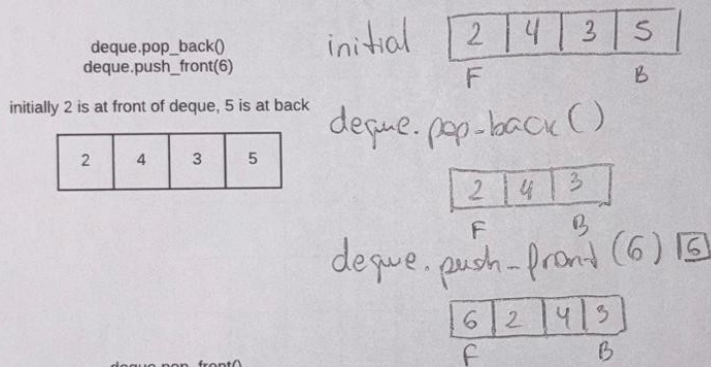 deque.pop_back()
deque.push_front(6)
initially 2 is at front of deque, 5 is at back
2 4 3 5
initial 2 4 3 5
F B
deque.pop-back()
2 4 3
F B
deque.push-front(6) 6
6 2 4 3
F B
deque.pop_front()